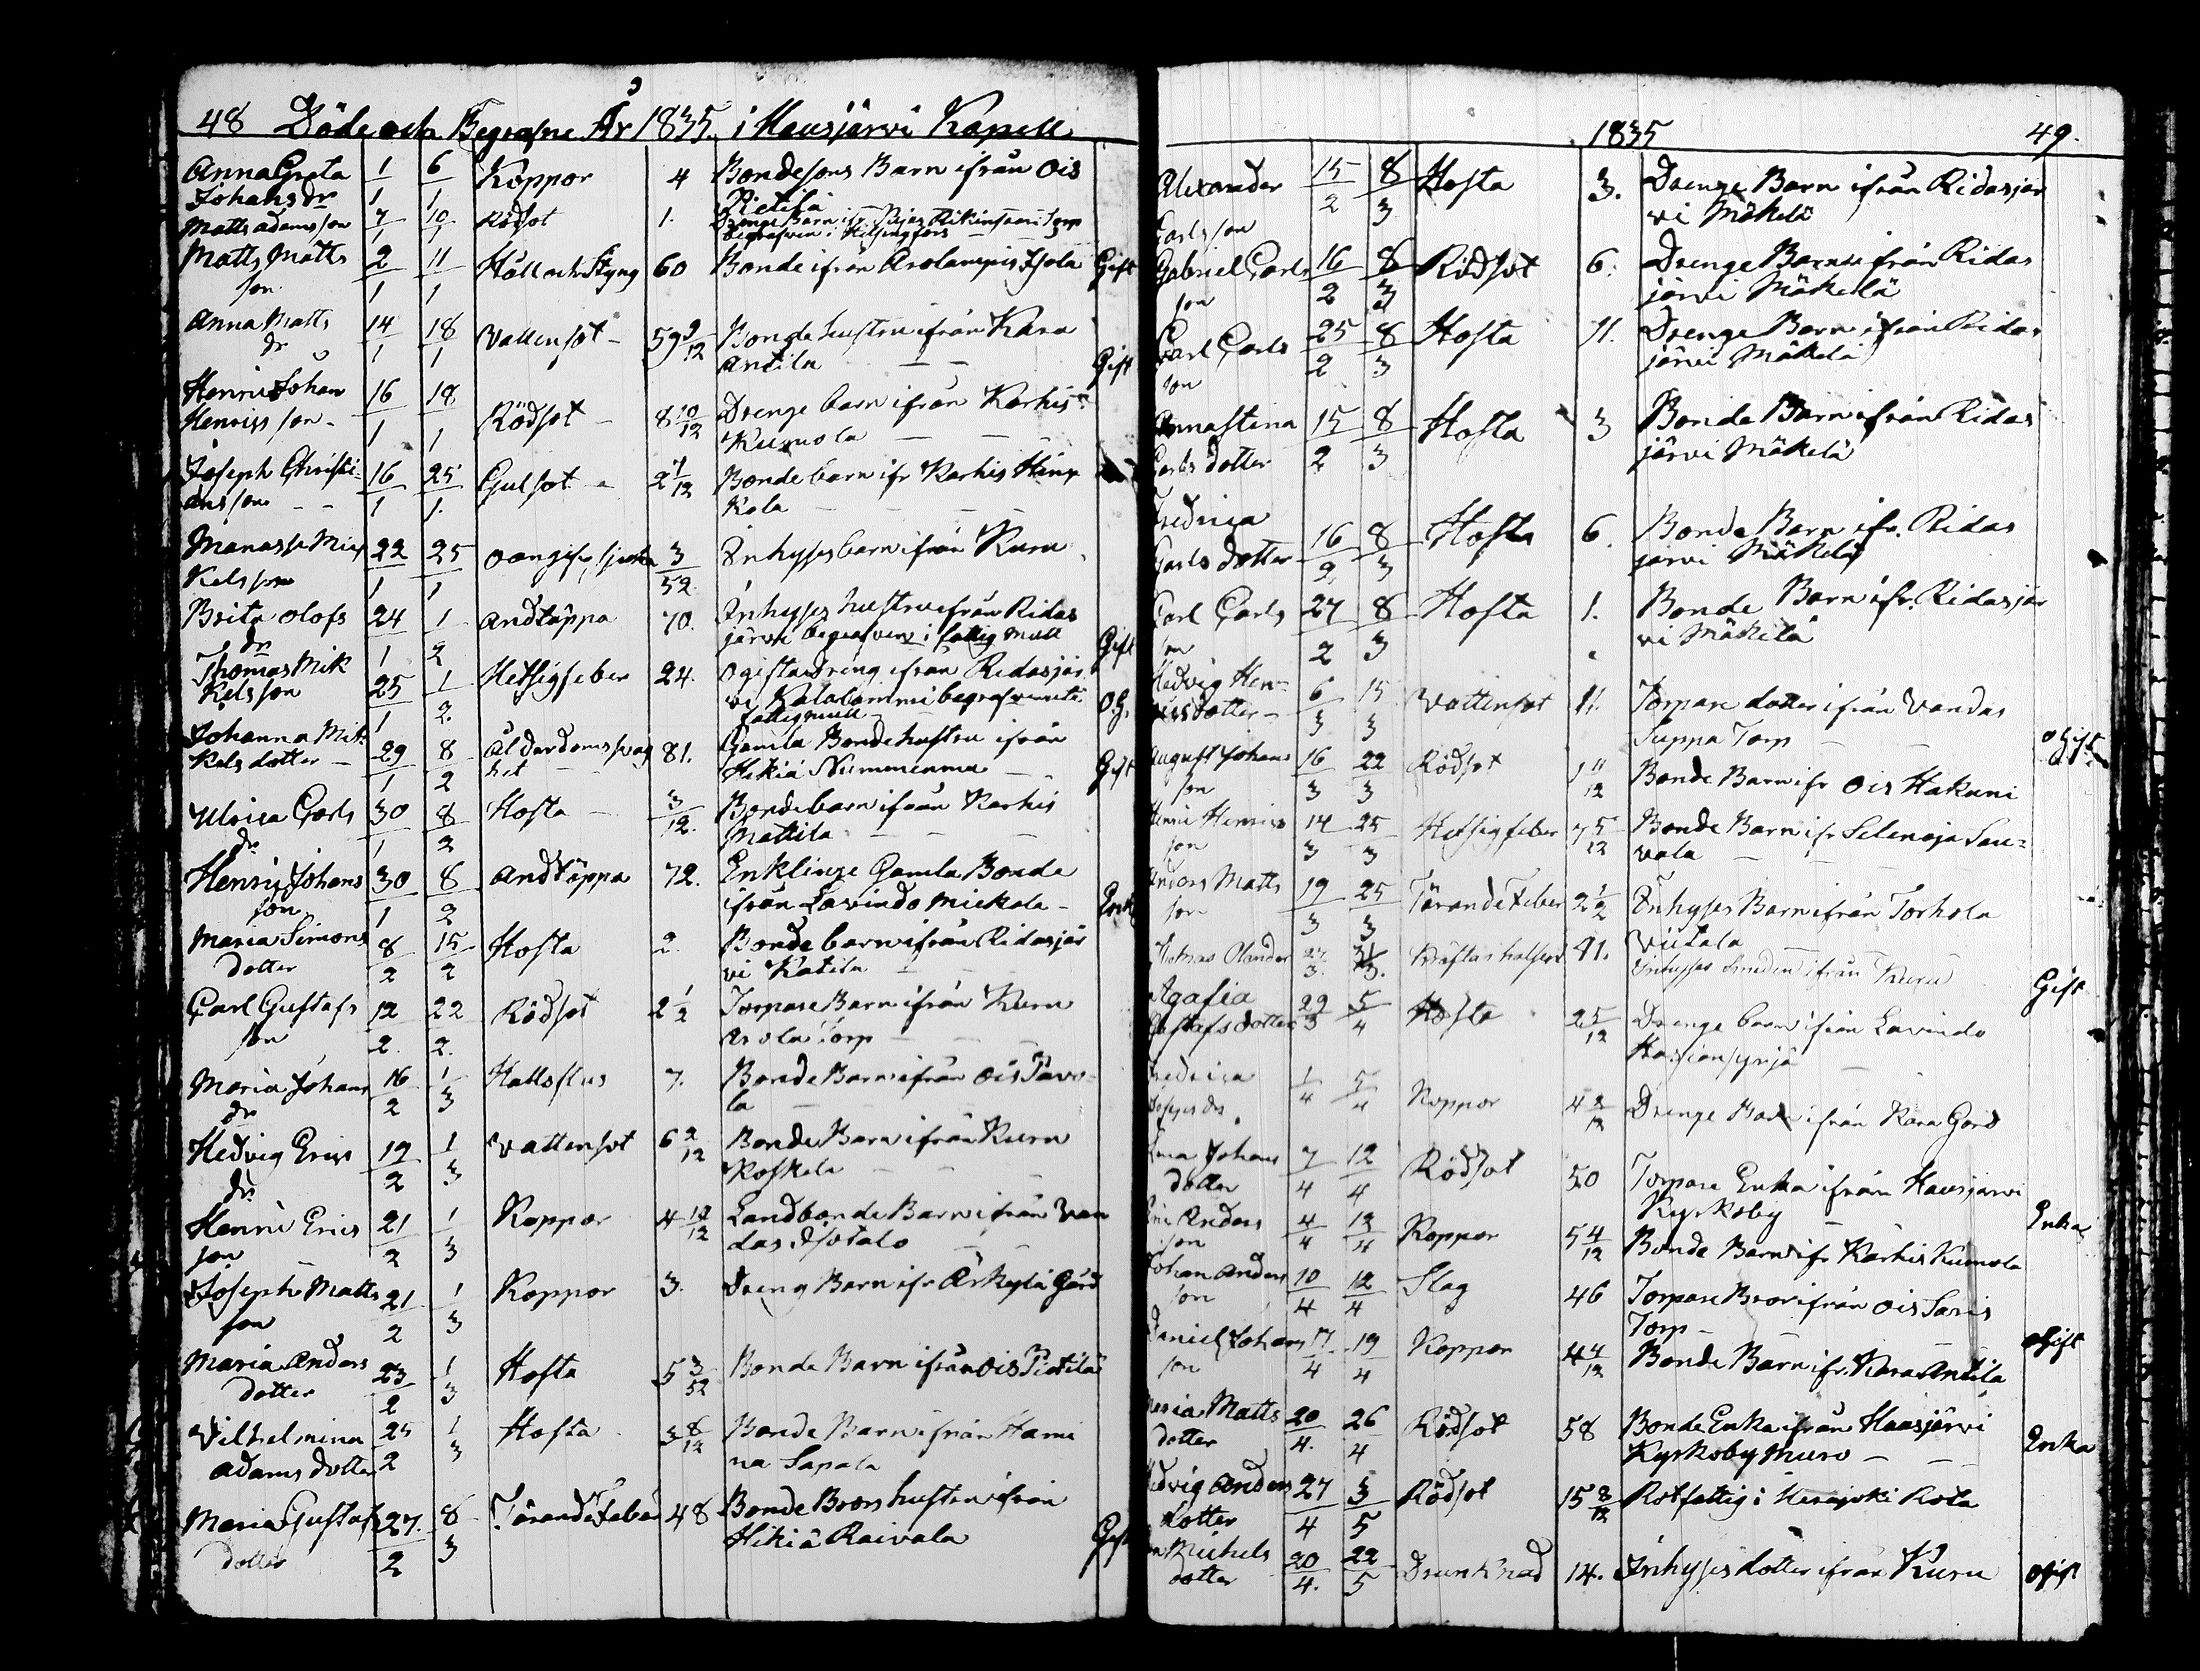 48 Döde och Begrafne År 1835. i Hausjärvi Kapell
Anna Greta 1/1 6/1 Koppor 4 Bondesons Barn ifrån Ois
Johans dr Pietilä
Matts Adamsson 7/1 10/1 Rödsot 1. Drenge Barn ifr
begrafven i Helsingfors
Matts Matts 2/1 11/1 Håll och Styng 60 Bonde ifrån Arolampis Gift
son
Anna Matts 14/1 18/1 Vattensot 59 9/12 Bonde hustru ifrån Kara
dr Antila Gift
Henric Johan 16/1 18/1 Rödsot 8 10/12 Drenge barn ifrån Karhis
Henrics son Kumola
Joseph Christi- 16/1 25/1 Gulsot 2 1/12 Bonde barn ifr Karhis
ans son kola
Manasse Mic 22/1 25/1 3/52 Inhyses barn ifrån Kuru
kels son
Brita Olofs 24/1 1/2 Andtäppa 70. Inhyses hustru ifrån Ridas
dr järvi begrafven i fattig mull Gift
Thomas Mik 25/1 1/2 Hetsigfeber 24. Ogifta dreng ifrån Ridasjär
kels son vi begrafven uti Og.
fattigmull
Johanna Mic 29/1 8/2 Ålderdoms svag 81. Gamla Bonde hustru ifrån
kels dotter het Hikiä Nummenmaa Gift
Ulrica Carls 30/1 8/2 Hosta 3/12. Bonde barn ifrån Karhis
dr Mattila
Henric Johans 30/1 8/2 Andtäppa 72. Enklinge Gamla Bonde
son ifrån Lavindo Mickola Enk
Maria Simons 8/2 15/2 Hosta 2. Bonde barn ifrån Ridasjär
dotter vi Katila
Carl Gustafs 12/2. 22/2. Rödsot 2 1/2 Torpare Barn ifrån Kuru
son Arola Torp
Maria Johans 16/2 1/3 7. Bonde Barn ifrån Ois Pavo-
dr la
Hedvig Erics 19/2 1/3 Vattensot 6 2/12 Bonde Barn ifrån Kuru
dr Koskela
Henric Erics 21/2 1/3 Koppor 4 Landbonde Barn ifrån Van
son das
Joseph Matts 21/2 1/3 Koppor 3. Dreng Barn ifr Erkylä Gård
son
Maria Anders 23/2 1/3 Hosta 5 3/52 Bonde Barn ifrån Ois Pietilä
dotter
Vilhelmina 25/2 1/3 Hosta 3 8/12 Bonde Barn ifrån Hami
Adams dotter na Sapala
Maria Gustafs 27./2 8/3 Tärande Feber 48 Bonde Brors hustru ifrån
dotter Hikiä Raivala Gift
1835 49.
Alexander 15/2 8/3 Hosta 3. Drenge Barn ifrån Ridasjär
Carls son vi Mäkelä
Gabriel Carls 16/2 8/3 Rödsot 6. Drenge Barn ifrån Ridas
son järvi Mäkelä
Carl Carls 25/2 8/3 Hosta 11. Drenge Barn ifrån Ridas
son järvi Mäkelä
Annastina 15/2 8/3 Hosta 3 Bonde Barn ifrån Ridas
Carls dotter järvi Mäkelä
Fredrica 16/2 8/3 Hosta 6. Bonde Barn ifr. Ridas
Carls dotter järvi Mäkelä
Carl Carls 27/2 8/3 Hosta 1. Bonde Barn ifr. Ridasjär
son vi Mäkelä
Hedvig Hen- 6/3 15/3 Vattensot 11. Torpare dotter ifrån Vandas
rics dotter Suppa Torp Ogift
August Johans 16/3 22/3 Rödsot 1 11/12 Bonde Barn ifr Ois Hakuni
son
Henric Henrics 14/3 25/3 Hetsigfeber 7 5/12 Bonde Barn ifr Selenoja Sau-
son vala
Anders Matts 19/3 25/3 Tärande Feber 2 1/2 Inhyses Barn ifrån Torhola
son Viitala
Olander 27/3. 31/3. 41. Inhyses ifrån Kuru Gift
Agafia 29/3 5/4 Hosta 2 5/12 Drenge barn ifrån Lavindo
Gustafs dotter
Fredrica 1/4 5/4 Koppor 4 2/12 Drenge Barn ifrån Kara Gård
Josefs dr
Johans 7/4 12/4 Rödsot 50 Torpare Enka ifrån Hausjärvi
dotter Kyrkoby Enka
Eric Anders 4/4 12/4 Koppor 5 4/12 Bonde Barn ifr Karhis Kumola
son
Johan Anders 10/4 12/4 Slag 46 Torpare Bror ifrån Ois Saris
son Torp Gift
Daniel Johans 17/4 19/4 Koppor 4 4/12 Bonde Barn ifr. Kara Antila
son
Maria Matts 20/4. 26/4 Rödsot 58 Bonde Enka ifrån Hausjärvi
dotter Kyrkoby Muro Enka
Hedvig Anders 27/4 3/5 Rödsot 15 8/12 Rotfattig i Kerajoki Rota
dotter
Michels 20/4. 22/5 Drunknad 14. Inhyses dotter ifrån Kuru Ogift
dotter